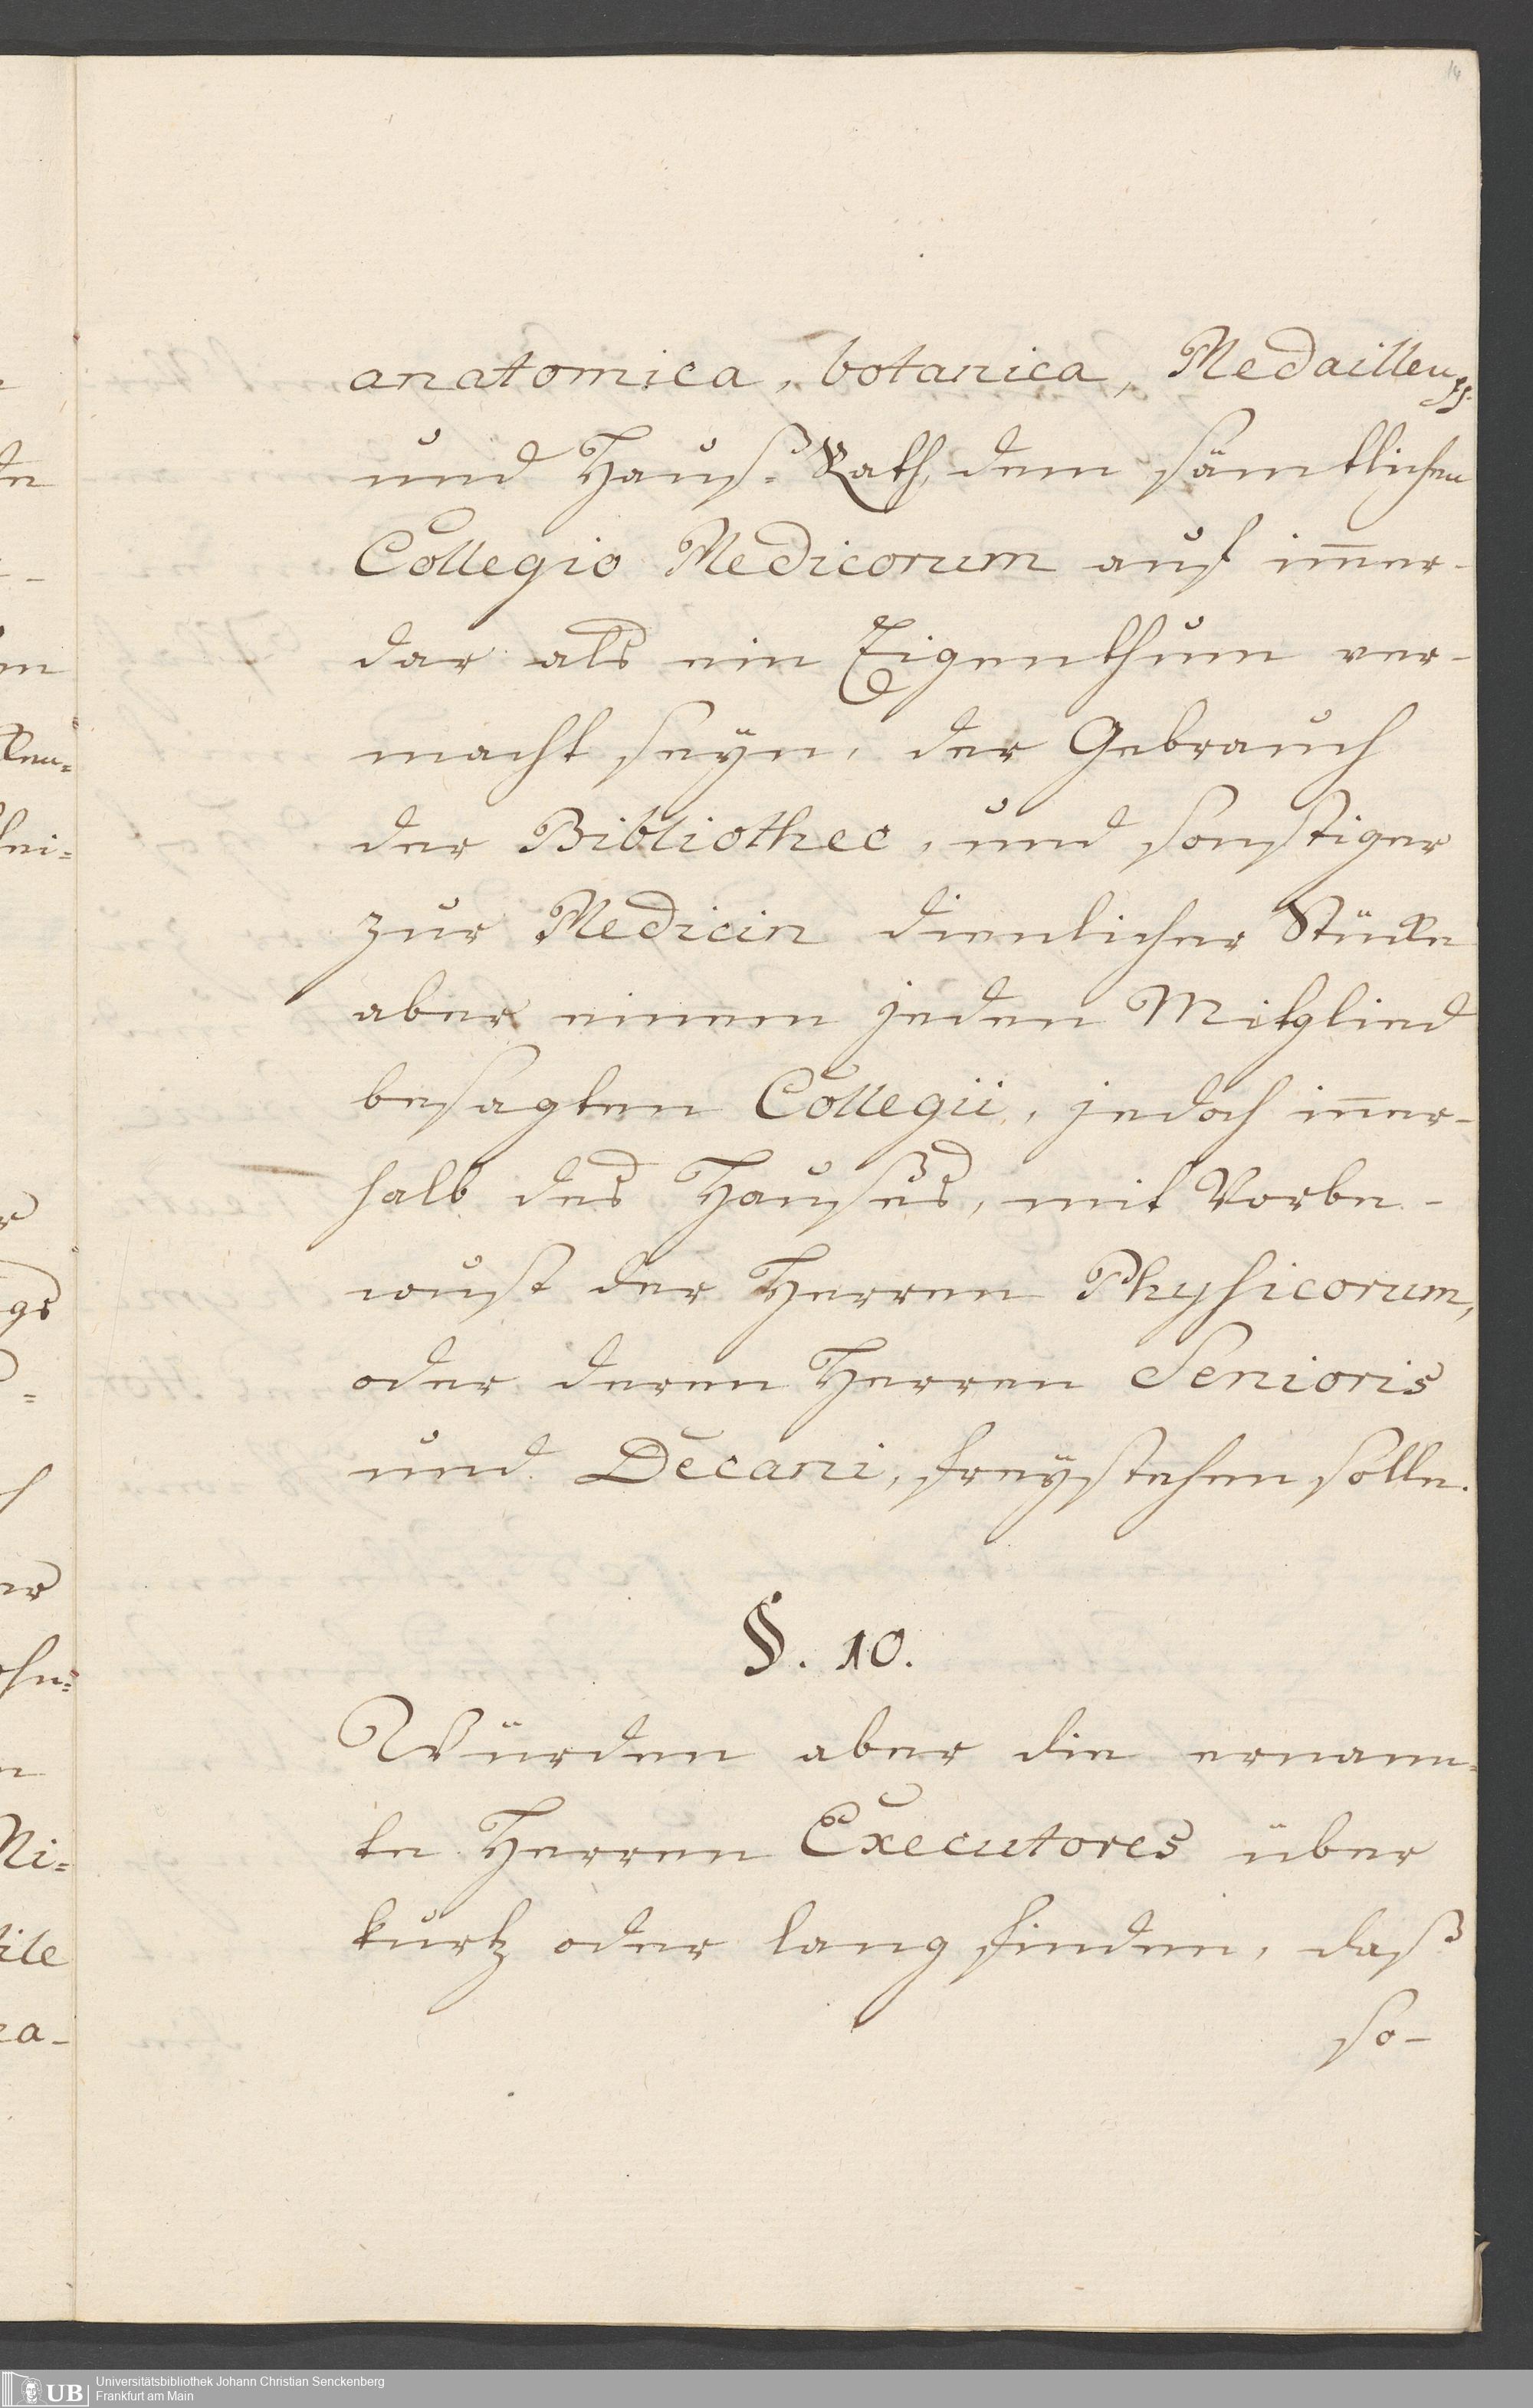 14
anatomica, botanica, Medaillen
und Hauß-Rath, dem sämtlichen
Collegio Medicorum auf im̅er-
dar als ein Eigenthum ver-
macht seyn, der Gebrauch
der Bibliothec, und sonstiger
zur Medicin dienlicher Stücke
aber einem jeden Mitglied
besagten Collegii, jedoch in̅er-
halb des Hauses, mit Vorbe-
wust der Herren Physicorum,
oder deren Herren Senioris
und Decani, freystehen solle.
§. 10.
Würden aber die ernann-
te Herren Executores über
kurtz oder lang finden, daß
so-
UB
Universitätsbibliothek Johann Christian Senckenberg
Frankfurt am Main